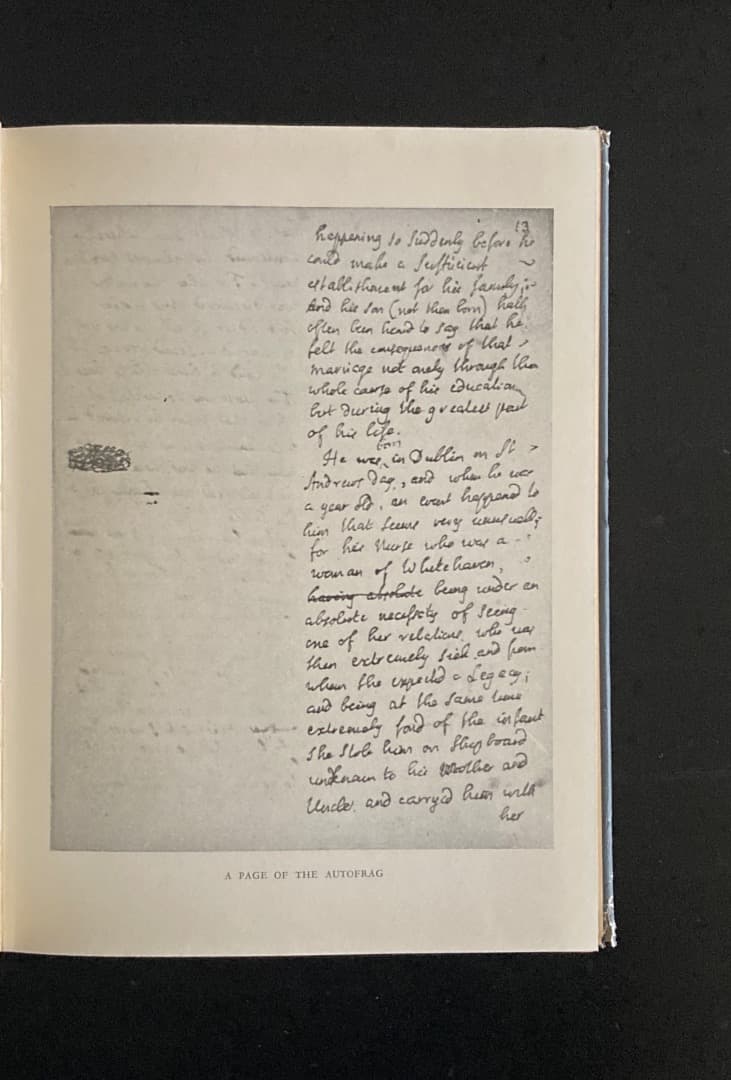 13
happening so suddenly before he
could make a Sufficient ~
establishment for his family:-
And his son (not then born) hath
often been heard to say that he
felt the consequences of that
marriage not onely through the
whole course of his education
but during the greatest part
of his life.
born
He was, in Dublin on St
Andrews day, and when he was
a year old, an event happened to
him that seems very unusuall;
for his Nurse who was a -
woman of Whitehaven,
having absolute being under an
absolute necessity of seeing
one of her relations, who was
then extremely sick, and from
whom she expected a Legacy;
and being at the same time
extremely fond of the infant
She stole him on Shipboard
unknown to his Mother and
Uncle, and carryed him with
her
A PAGE OF THE AUTOFRAG